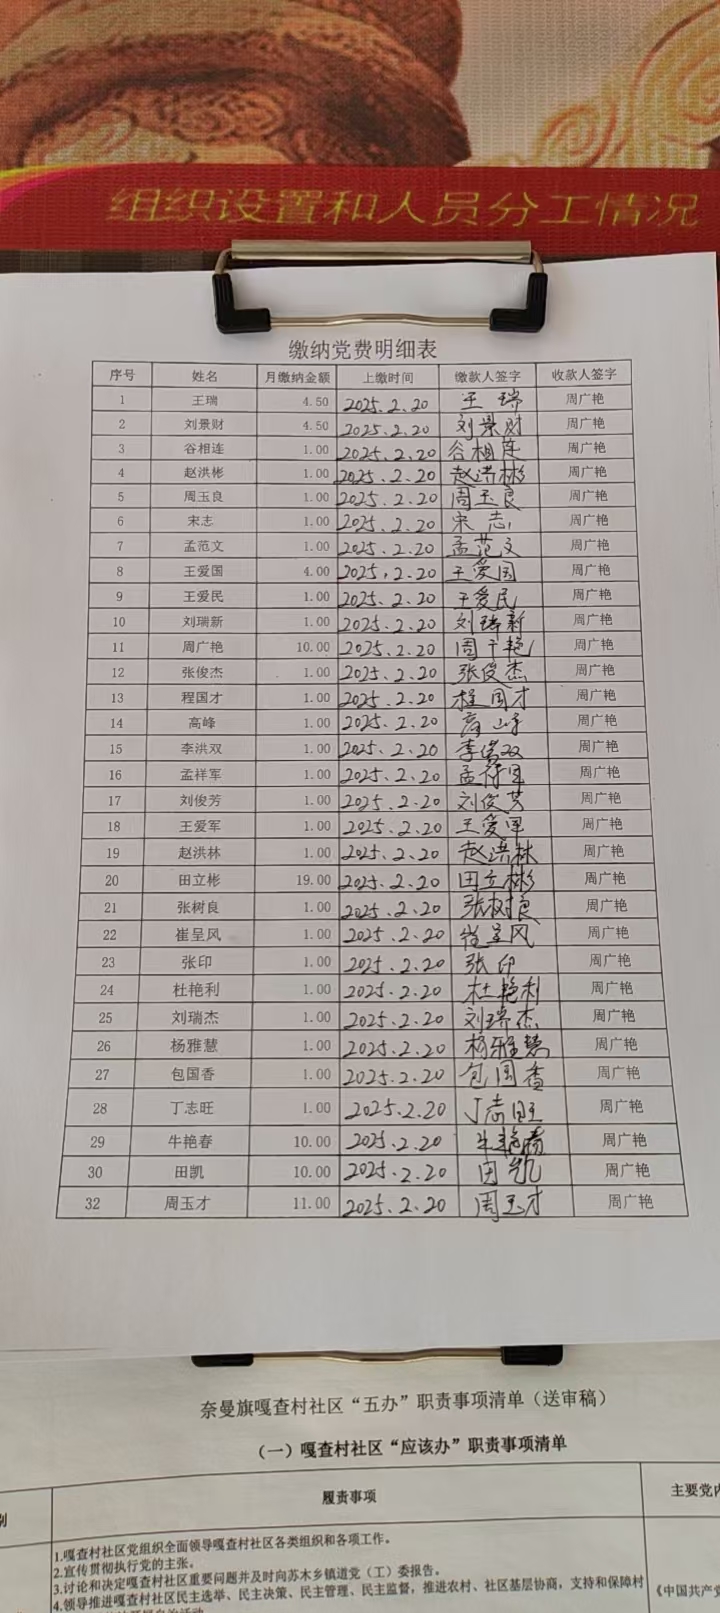 组织设置和人员分工情况
缴纳党费明细表
序号 姓名 月缴纳金额 上缴时间 缴款人签字 收款人签字
1 王瑞 4.50 2025.2.20 王瑞 周广艳
2 刘景财 4.50 2025.2.20 刘景财 周广艳
3 谷相连 1.00 2025.2.20 谷相连 周广艳
4 赵洪彬 1.00 2025.2.20 赵洪彬 周广艳
5 周玉良 1.00 2025.2.20 周玉良 周广艳
6 宋志 1.00 2025.2.20 宋志 周广艳
7 孟范文 1.00 2025.2.20 孟范文 周广艳
8 王爱国 4.00 2025.2.20 王爱国 周广艳
9 王爱民 1.00 2025.2.20 王爱民 周广艳
10 刘瑞新 1.00 2025.2.20 刘瑞新 周广艳
11 周广艳 10.00 2025.2.20 周广艳 周广艳
12 张俊杰 1.00 2025.2.20 张俊杰 周广艳
13 程国才 1.00 2025.2.20 程国才 周广艳
14 高峰 1.00 2025.2.20 高峰 周广艳
15 李洪双 1.00 2025.2.20 李洪双 周广艳
16 孟祥军 1.00 2025.2.20 孟祥军 周广艳
17 刘俊芳 1.00 2025.2.20 刘俊芳 周广艳
18 王爱军 1.00 2025.2.20 王爱军 周广艳
19 赵洪林 1.00 2025.2.20 赵洪林 周广艳
20 田立彬 19.00 2025.2.20 田立彬 周广艳
21 张树良 1.00 2025.2.20 张树良 周广艳
22 崔呈风 1.00 2025.2.20 崔呈风 周广艳
23 张印 1.00 2025.2.20 张印 周广艳
24 杜艳利 1.00 2025.2.20 杜艳利 周广艳
25 刘瑞杰 1.00 2025.2.20 刘瑞杰 周广艳
26 杨雅慧 1.00 2025.2.20 杨雅慧 周广艳
27 包国香 1.00 2025.2.20 包国香 周广艳
28 丁志旺 1.00 2025.2.20 丁志旺 周广艳
29 牛艳春 10.00 2025.2.20 牛艳春 周广艳
30 田凯 10.00 2025.2.20 田凯 周广艳
32 周玉才 11.00 2025.2.20 周玉才 周广艳
奈曼旗嘎查村社区“五办”职责事项清单（送审稿）
（一）嘎查村社区“应该办”职责事项清单
别 履责事项 主要党内
1.嘎查村党组织全面领导嘎查村社区各类组织和各项工作。
2.宣传贯彻执行党的主张。
3.讨论和决定嘎查村社区重要问题并及时向苏木乡镇道党（工）委报告。
4.领导推进嘎查村社区民主选举、民主决策、民主管理、民主监督，推进农村、社区基层协商，支持和保障村 《中国共产党